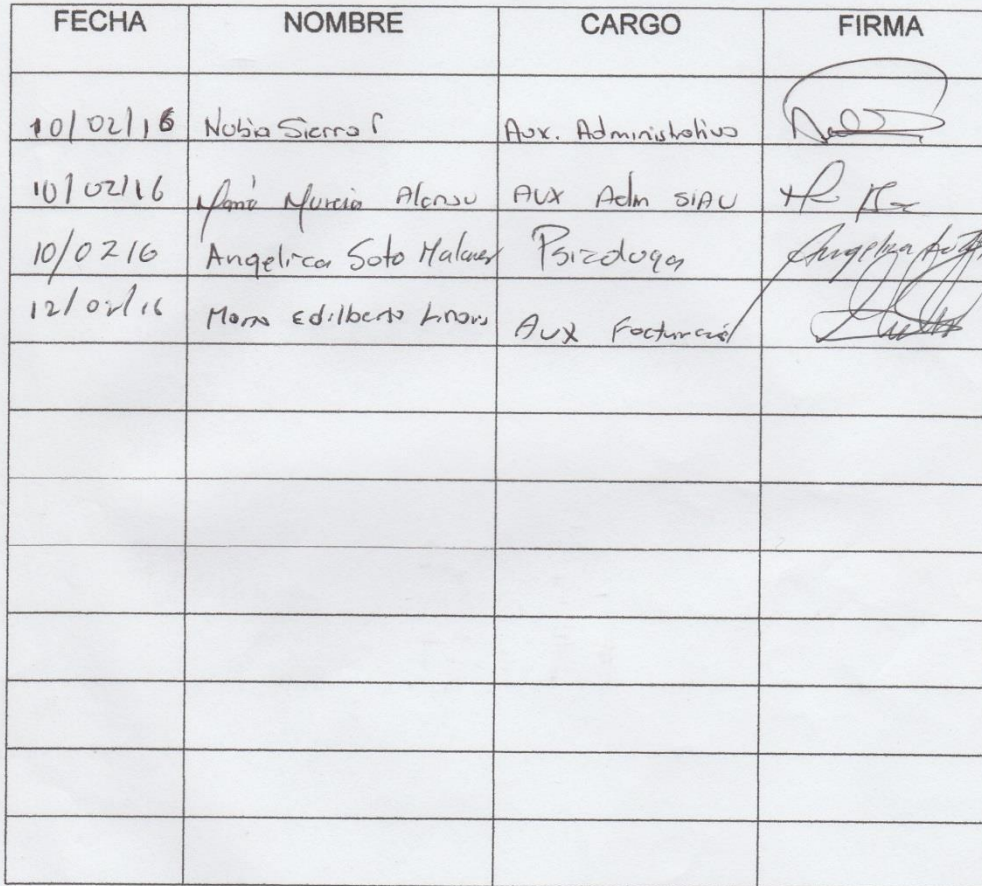 FECHA NOMBRE CARGO FIRMA
10/02/16 Nubia Sierra Aux. Administrativo
10/02/16 Murcia Alonso AUX Adm SIAU
10/0216 Angelica Soto Psicologa Angelica Soto
12/02/16 Edilberto AUX Facturació